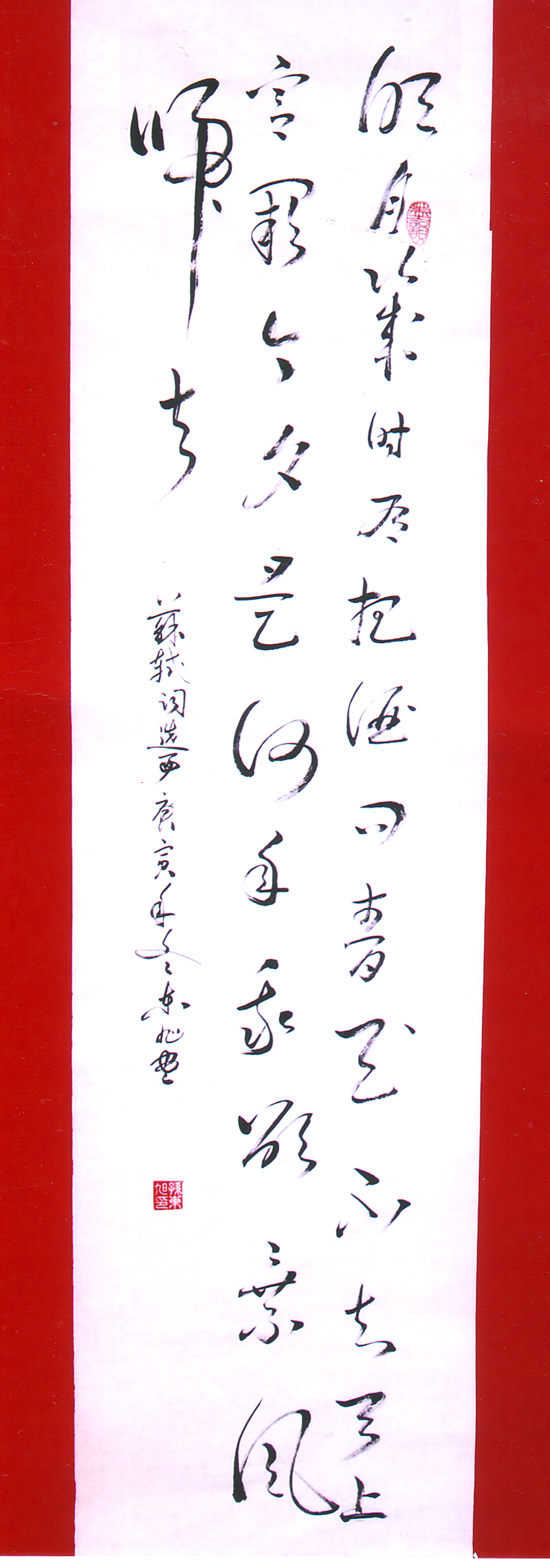 明月几时有把酒问青天不知天上
宫阙今夕是何年我欲乘风
归去
苏轼词选句庚寅年冬东旭书
孙东旭印